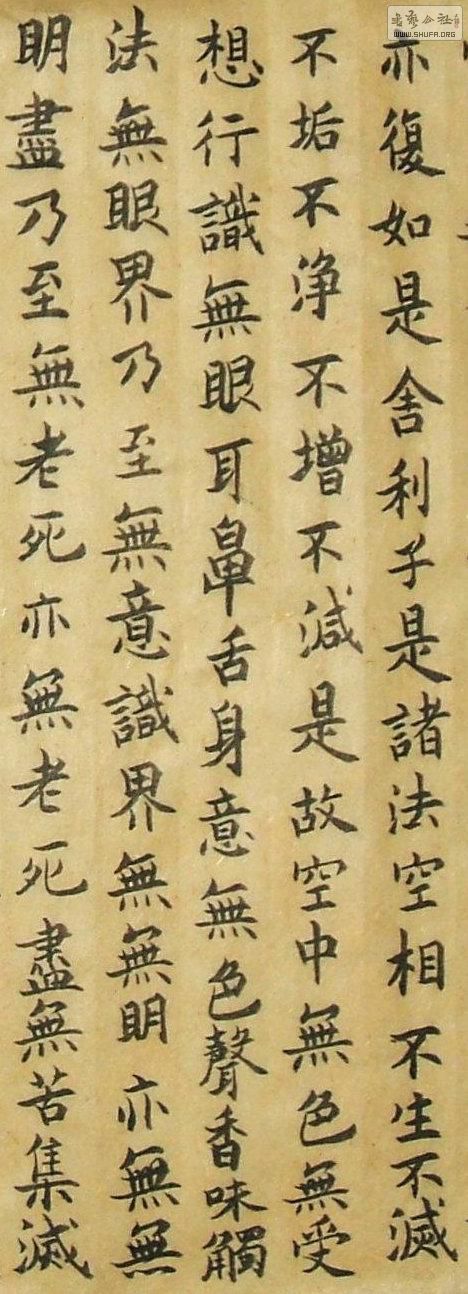 亦復如是舍利子是諸法空相不生不滅
不垢不淨不增不減是故空中無色無受
想行識無眼耳鼻舌身意無色聲香味觸
法無眼界乃至無意識界無無明亦無無
明盡乃至無老死亦無老死盡無苦集滅
WWW.SHUFA.ORG